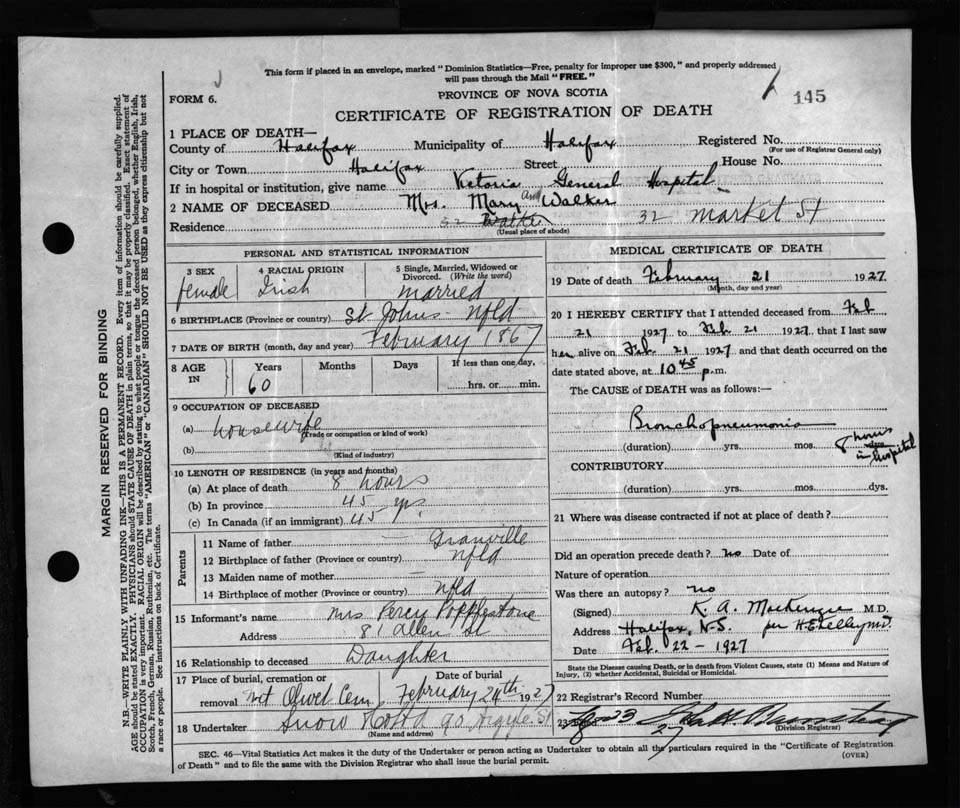 This form if placed in an envelope, marked "Dominion Statistics—Free, penalty for improper use $300," and properly addressed
will pass through the Mail "FREE."
FORM 6.
PROVINCE OF NOVA SCOTIA
145
CERTIFICATE OF REGISTRATION OF DEATH
1 PLACE OF DEATH—
County of Halifax Municipality of Halifax Registered No.
(For use of Registrar General only)
City or Town Halifax Street House No.
If in hospital or institution, give name Victoria General Hospital
2 NAME OF DECEASED Mrs. Mary Ann Walker
Residence 32 Market St
(Usual place of abode)
PERSONAL AND STATISTICAL INFORMATION
3 SEX female
4 RACIAL ORIGIN Irish
5 Single, Married, Widowed or Divorced. (Write the word) married
6 BIRTHPLACE (Province or country) St Johns Nfld
7 DATE OF BIRTH (month, day and year) February 1867
8 AGE IN Years 60 Months Days If less than one day, hrs. or min.
9 OCCUPATION OF DECEASED
(a) Housewife
(Trade or occupation or kind of work)
(b)
(Kind of industry)
10 LENGTH OF RESIDENCE (in years and months)
(a) At place of death 8 hours
(b) In province 45 yrs
(c) In Canada (if an immigrant) 45 yrs
Parents
11 Name of father — Granville
12 Birthplace of father (Province or country) Nfld
13 Maiden name of mother —
14 Birthplace of mother (Province or country) Nfld
15 Informant's name Mrs Percy Popplestone
Address 81 Allen St
16 Relationship to deceased Daughter
17 Place of burial, cremation or removal Mt Olivet Cem. Date of burial February 24th 1927
18 Undertaker Snow 90 Argyle St
(Name and address)
MEDICAL CERTIFICATE OF DEATH
19 Date of death February 21 1927
(Month, day and year)
20 I HEREBY CERTIFY that I attended deceased from Feb
21 1927 to Feb 21 1927, that I last saw
her alive on Feb. 21 1927 and that death occurred on the
date stated above, at 10 45 p.m.
The CAUSE of DEATH was as follows:—
Bronchopneumonia
(duration) yrs. mos. 8 hours in hospital
CONTRIBUTORY
(duration) yrs. mos. dys.
21 Where was disease contracted if not at place of death?
Did an operation precede death? no Date of
Nature of operation
Was there an autopsy? no
(Signed) K. A. MacKenzie M.D.
Address Halifax, N.S. per
Date Feb. 22 - 1927
State the Disease causing Death, or in death from Violent Causes, state (1) Means and Nature of
Injury, (2) whether Accidental, Suicidal or Homicidal.
22 Registrar's Record Number
23 23 27
(Division Registrar)
SEC. 46—Vital Statistics Act makes it the duty of the Undertaker or person acting as Undertaker to obtain all the particulars required in the "Certificate of Registration
of Death" and to file the same with the Division Registrar who shall issue the burial permit. (OVER)
MARGIN RESERVED FOR BINDING
N.B.—WRITE PLAINLY WITH UNFADING INK—THIS IS A PERMANENT RECORD. Every item of information should be carefully supplied.
AGE should be stated EXACTLY. PHYSICIANS should STATE CAUSE OF DEATH in plain terms, so that it may be properly classified. Exact statement of
OCCUPATION is very important. RACIAL ORIGIN will be described by stating to what people or tongue the deceased person belonged, whether English, Irish,
Scotch, French, German, Russian, Ruthenian, etc. The terms "AMERICAN" or "CANADIAN" SHOULD NOT BE USED as they express citizenship but not
a race or people. See instructions on back of Certificate.